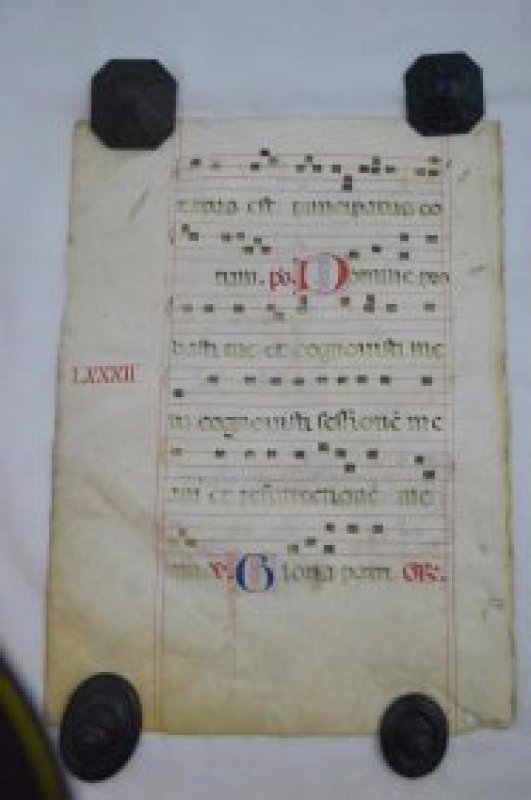 tatus est principatus eo
rum. ps. Domine pro
basti me et cognovisti me
LXXXII
tu cognovisti sessionē me
am et resurrectionē me
am. V. Gloria patri.